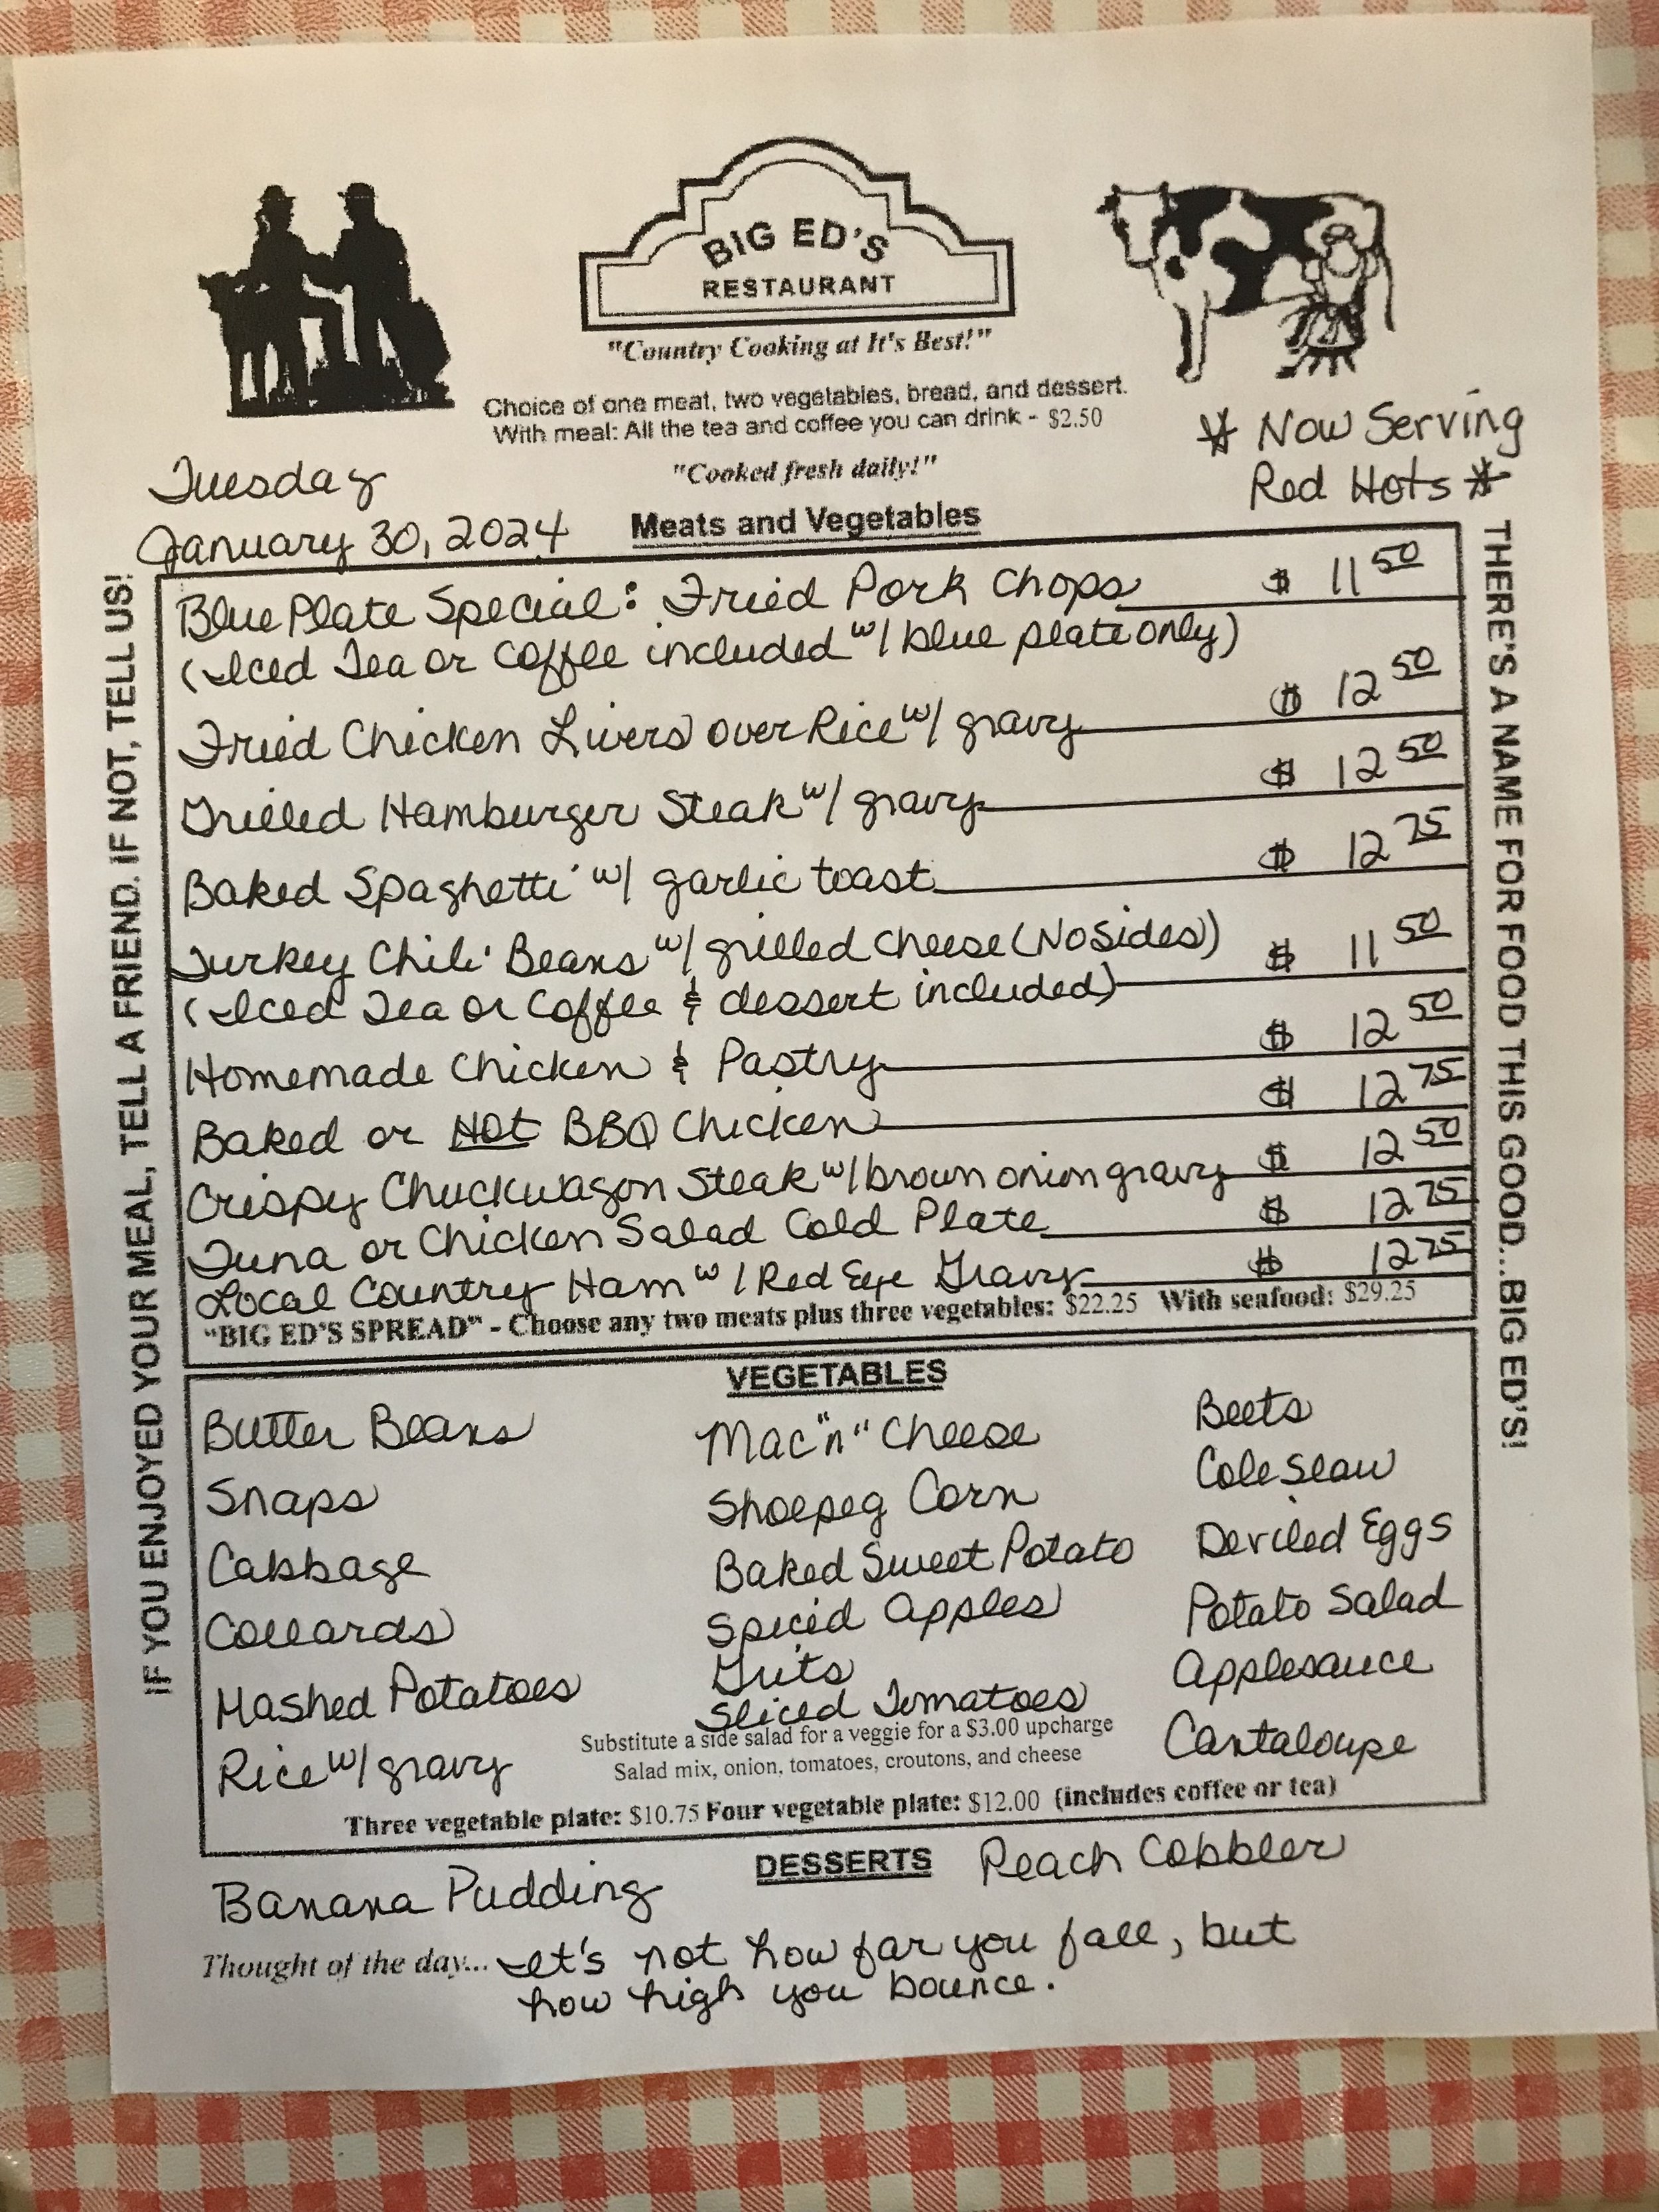 BIG ED'S
RESTAURANT
"Country Cooking at It's Best!"
Choice of one meat, two vegetables, bread, and dessert.
With meal: All the tea and coffee you can drink - $2.50
"Cooked fresh daily!"
* Now Serving
Red Hots *
Tuesday
January 30, 2024
Meats and Vegetables
IF YOU ENJOYED YOUR MEAL, TELL A FRIEND. IF NOT, TELL US!
THERE'S A NAME FOR FOOD THIS GOOD...BIG ED'S!
Blue Plate Special: Fried Pork Chops $ 11 50
(Iced Tea or Coffee included w/ blue plate only)
Fried Chicken Livers over Rice w/ gravy $ 12 50
Grilled Hamburger Steak w/ gravy $ 12 50
Baked Spaghetti w/ garlic toast $ 12 75
Turkey Chili Beans w/ grilled cheese (No Sides) $ 11 50
(Iced Tea or Coffee & dessert included)
Homemade Chicken & Pastry $ 12 50
Baked or Hot BBQ Chicken $ 12 75
Crispy Chuckwagon Steak w/ brown onion gravy $ 12 50
Tuna or Chicken Salad Cold Plate $ 12 75
Local Country Ham w/ Red Eye Gravy $ 12 75
"BIG ED'S SPREAD" - Choose any two meats plus three vegetables: $22.25 With seafood: $29.25
VEGETABLES
Butter Beans
Snaps
Cabbage
Collards
Mashed Potatoes
Rice w/ gravy
Mac "n" Cheese
Shoepeg Corn
Baked Sweet Potato
Spiced Apples
Grits
Sliced Tomatoes
Beets
Cole Slaw
Deviled Eggs
Potato Salad
Applesauce
Cantaloupe
Substitute a side salad for a veggie for a $3.00 upcharge
Salad mix, onion, tomatoes, croutons, and cheese
Three vegetable plate: $10.75 Four vegetable plate: $12.00 (includes coffee or tea)
DESSERTS
Banana Pudding
Peach Cobbler
Thought of the day... It's not how far you fall, but
how high you bounce.